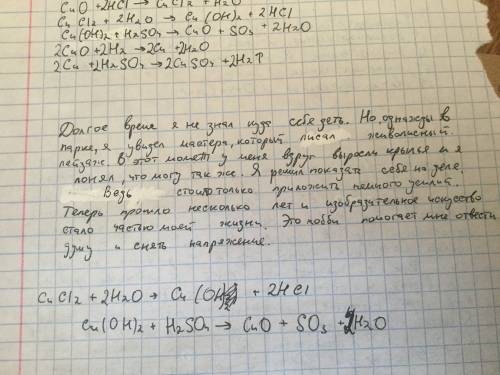 CuO + 2HCl → CuCl2 + H2O
CuCl2 + 2H2O → Cu(OH)2 + 2HCl
Cu(OH)2 + H2SO4 → CuO + SO3 + 2H2O
2CuO + 2H2 → 2Cu + 2H2O
2Cu + 2H2SO4 → 2CuSO4 + 2H2↑
Долгое время я не знал куда себя деть. Но, однажды в
парке, я увидел мастера, который писал живописный
пейзаж. В этот момент у меня вдруг выросли крылья и я
понял, что могу так же. Я решил показать себя на деле.
Ведь стоит только приложить немного усилий.
Теперь прошло несколько лет и изобразительное искусство
стало частью моей жизни. Это хобби помогает мне отвести
душу и снять напряжение.
CuCl2 + 2H2O → Cu(OH)2 + 2HCl
Cu(OH)2 + H2SO4 → CuO + SO3 + 2H2O